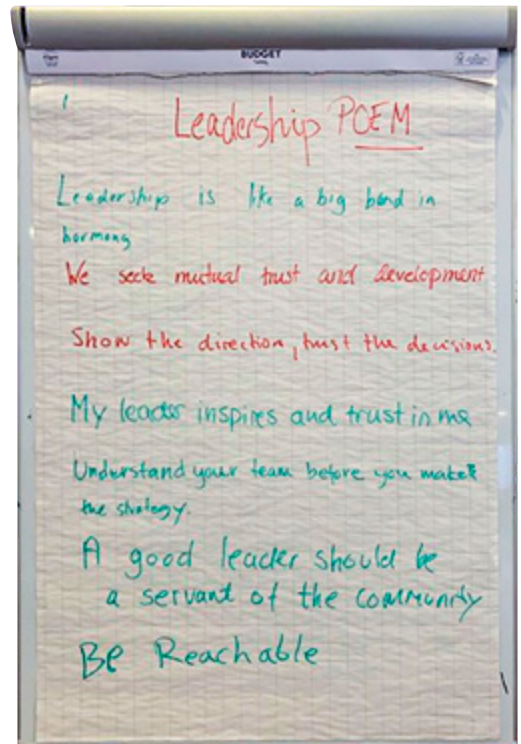 BUDGET
Leadership POEM
Leadership is like a big band in
harmony
We seek mutual trust and development
Show the direction, trust the decisions.
My leader inspires and trust in me
Understand your team before you make
the strategy.
A good leader should be
a servant of the community
Be Reachable